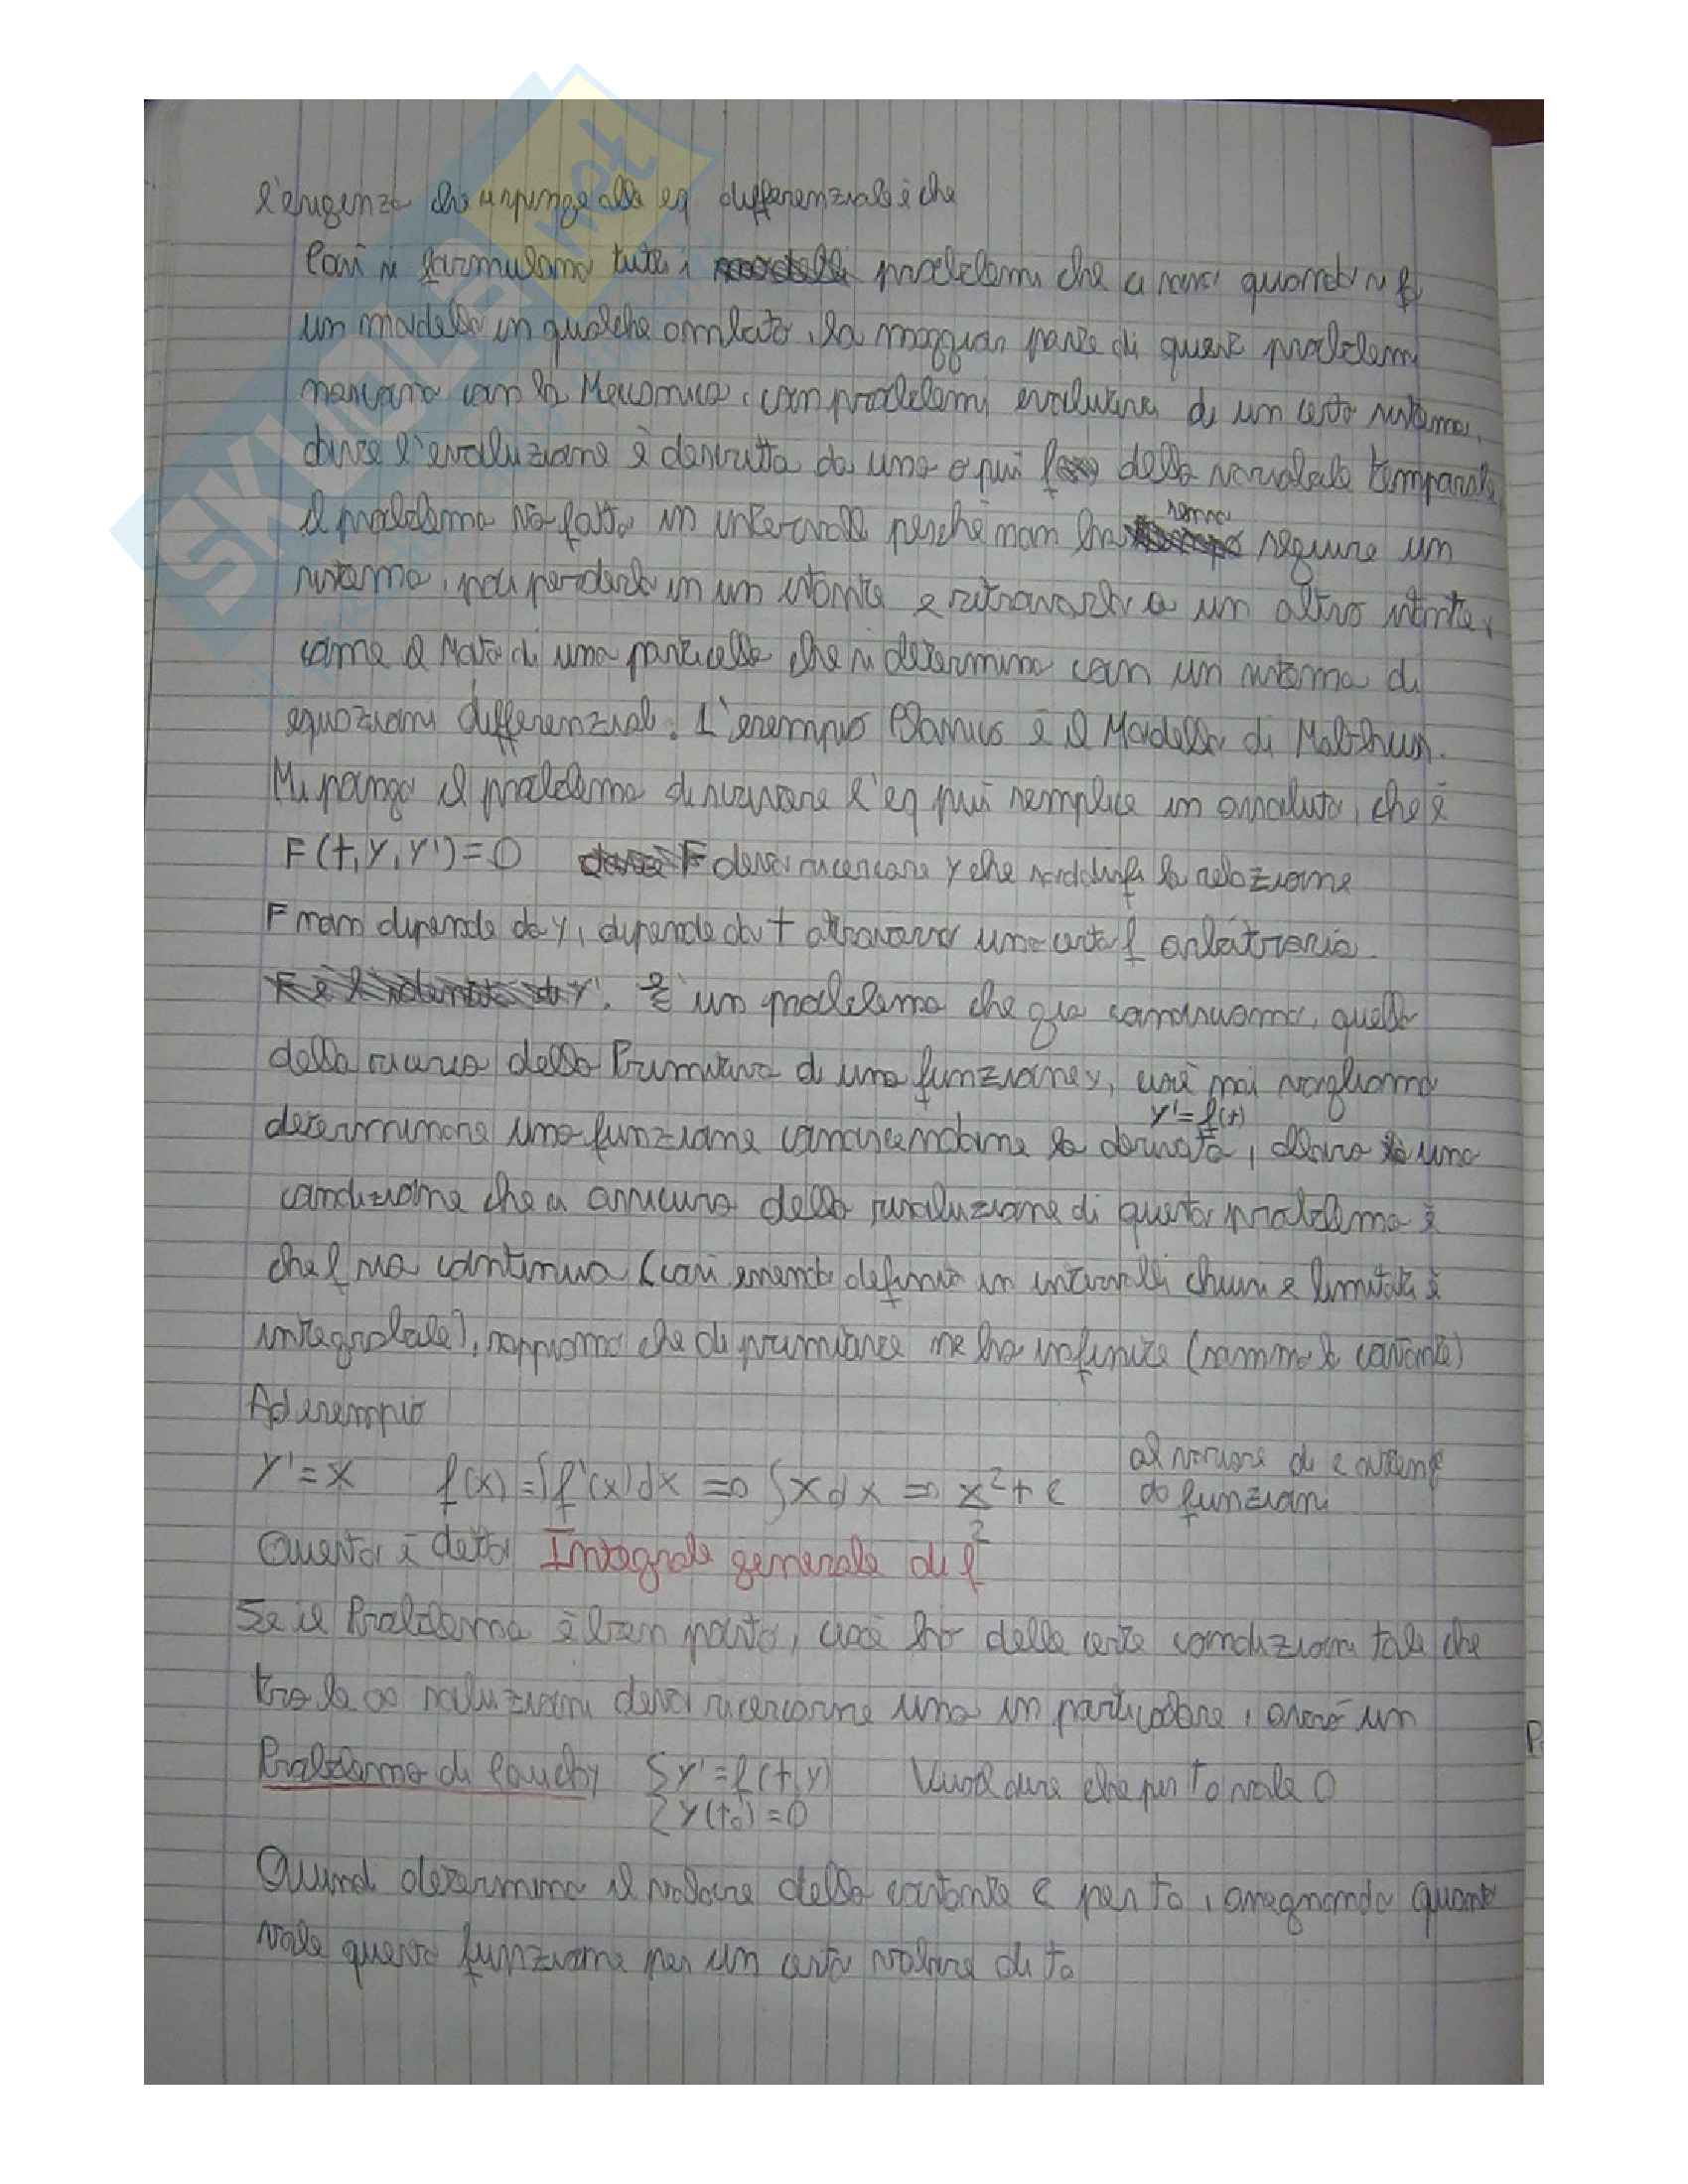 l'esigenza che ci spinge alle eq differenziali è che
Così si formulano tutti i problemi che ci sono quando si fa
un modello in qualche ambito, la maggior parte di questi problemi
nascono con la Meccanica, con problemi evolutivi di un certo sistema,
dove l'evoluzione è descritta da una o più f della variabile temporale
il problema va fatto in intervalli perché non ha senso seguire un
sistema, poi perderlo in un istante e ritrovarlo a un altro istante,
come il Moto di una particella che si determina con un sistema di
equazioni differenziali. L'esempio Classico è il Modello di Malthus.
Mi pongo il problema di scrivere l'eq più semplice in assoluto, che è
F(t,y,y')=0 devo ricercare y che soddisfi la relazione
F non dipende da y, dipende da t attraverso una certa f arbitraria.
È un problema che già conosciamo, quello
della ricerca della Primitiva di una funzione y, cioè noi vogliamo
determinare una funzione conoscendone la derivata, allora una
y'=f(t)
condizione che ci assicura della risoluzione di questo problema è
che f sia continua (così essendo definita in intervalli chiusi e limitati è
integrabile), sappiamo che di primitive ne ha infinite (sommo la costante)
Ad esempio
y'=x f(x)=∫f'(x)dx ⇒ ∫xdx ⇒ x²/2 + c al variare di c
di funzioni
Questo è detto Integrale generale di f
Se il Problema è ben posto, cioè ho delle certe condizioni tale che
tra le ∞ soluzioni devo ricercarne una in particolare, avrò un
Problema di Cauchy { y'=f(t,y) Vuol dire che per t0 vale 0
{ y(t0)=0
Quindi determino il valore della costante c per t0, assegnando quanto
vale questa funzione per un certo valore di t0